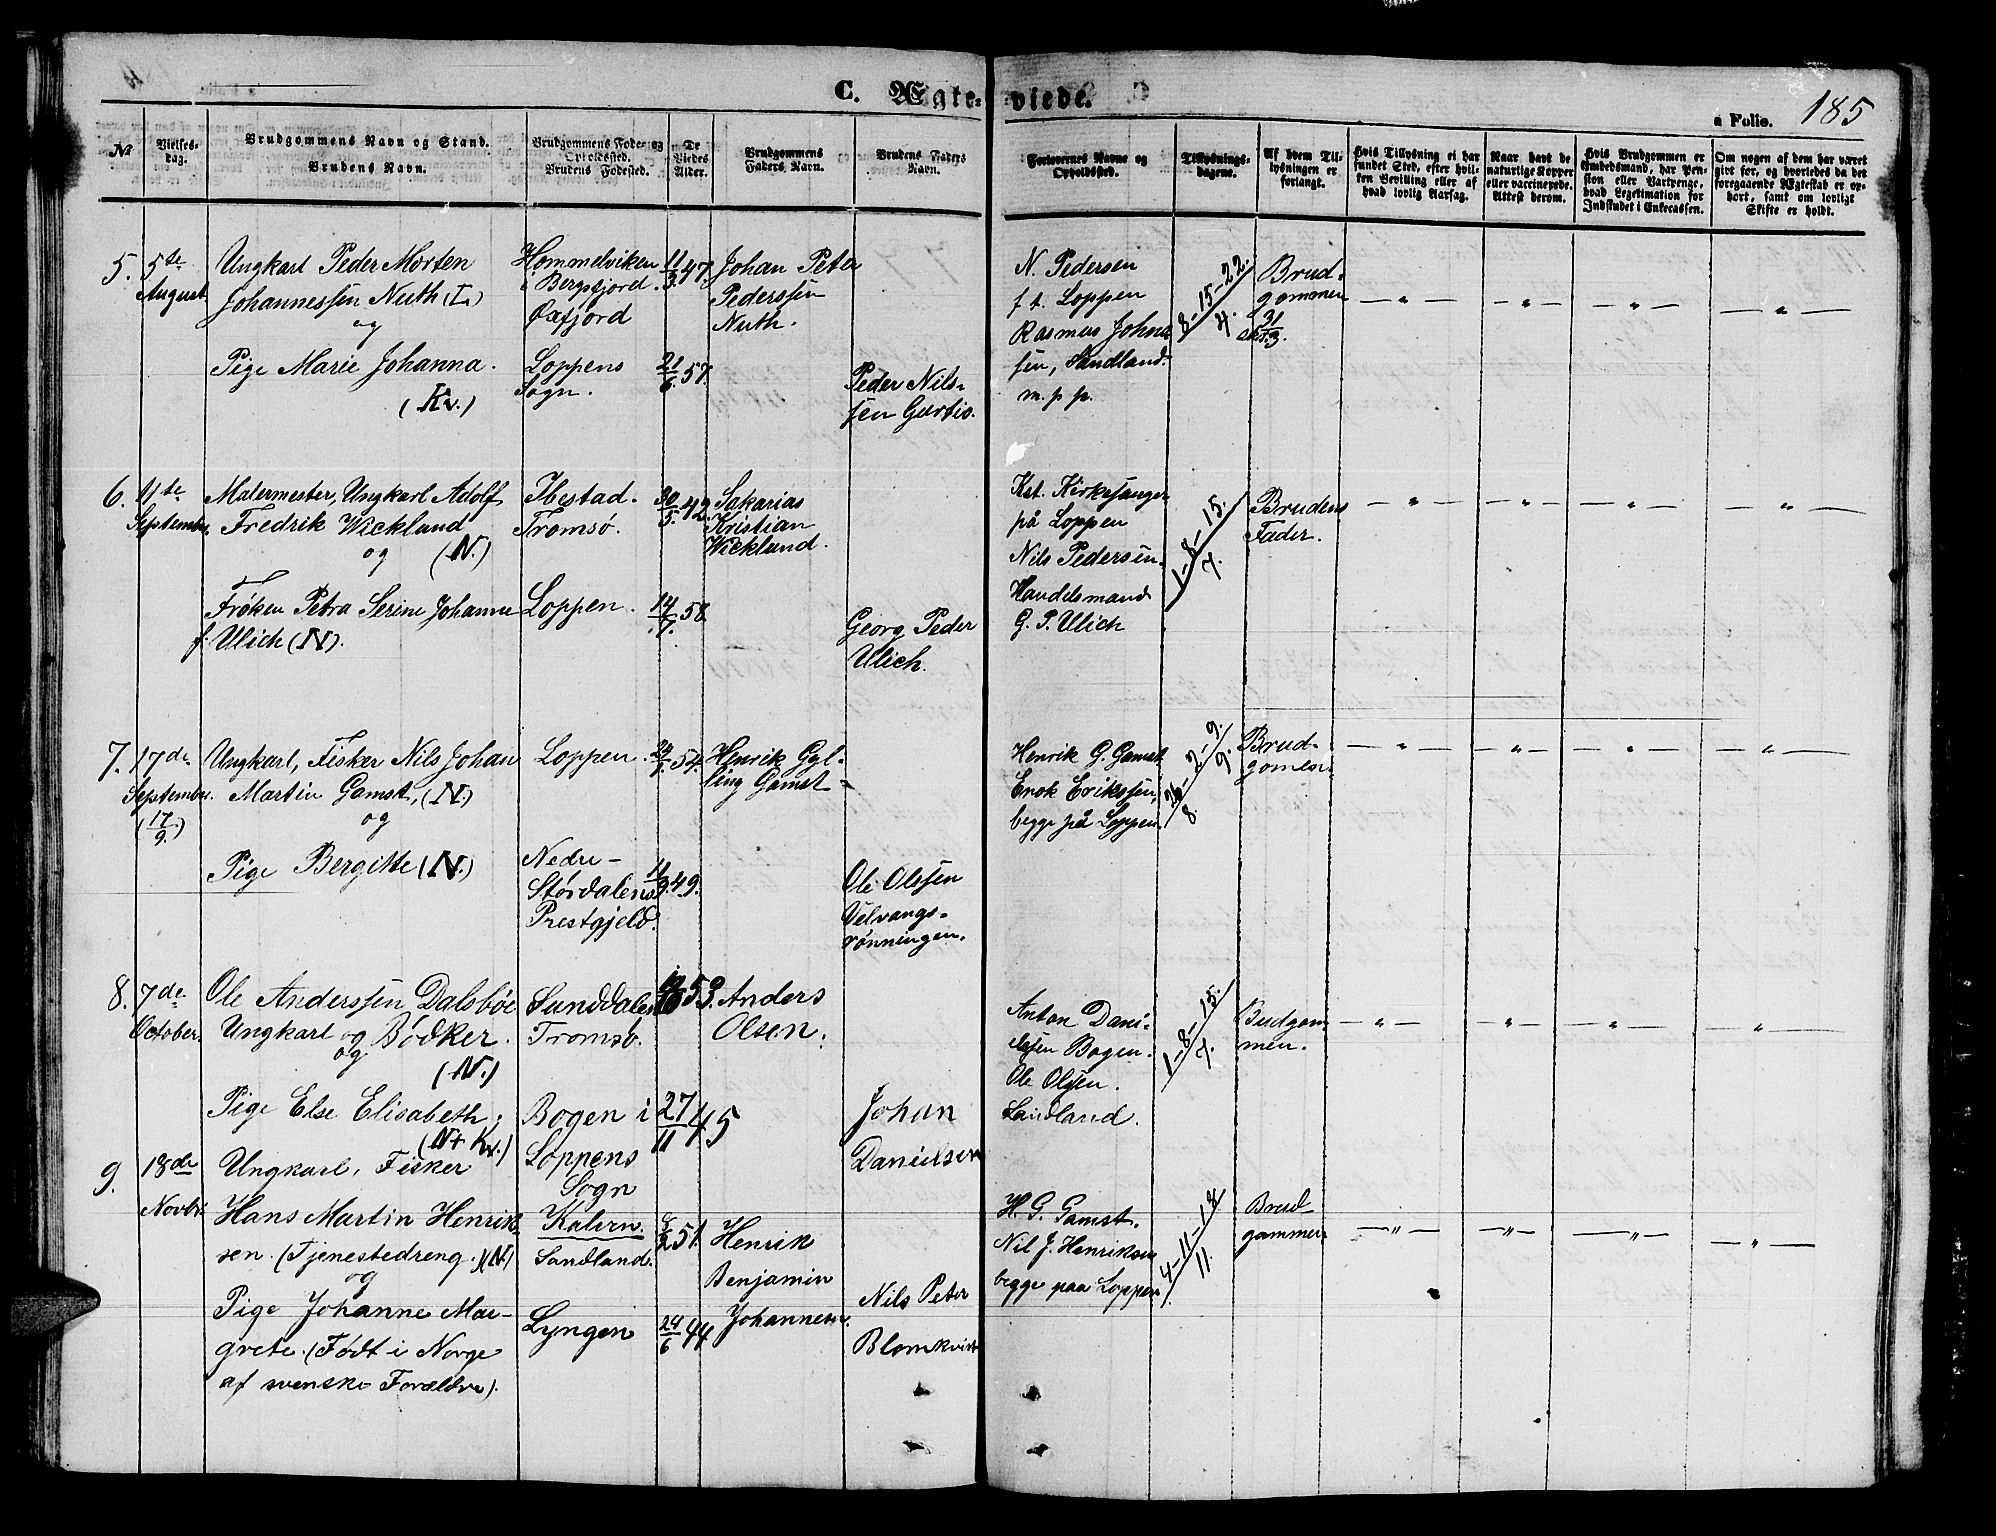 C. Ægteviede.
185
a Folie.
№
Vielsesdag.
Brudgommens Navn og Stand.
Brudens Navn.
Brudgommens Føde- og Opholdssted.
Brudens Fødested.
De Viedes Alder.
Brudgommens Faders Navn.
Brudens Faders Navn.
Forlovernes Navne og Opholdssted.
Tillysningsdagene.
Af hvem Tillysningen er forlangt.
Hvis Tillysning ei har fundet Sted, efter hvilken Bevilling eller af hvad lovlig Aarsag.
Naar havt de naturlige Kopper eller vaccinerede. Attest derom.
Hvis Brudgommen er Embedsmand, har Pension eller Vartpenge, hvad Legitimation for Indskudet i Enkecassen.
Om nogen af dem har været givt før, og hvorledes da det foregaaende Ægteskab er ophørt, samt om lovligt Skifte er holdt.
5. 5te August
Ungkarl Peder Morten
Johannessen Nuth (L)
og
Pige Marie Johanna.
(Kv.)
Hommelviken
i Bergsfjord
Øxfjord
Loppens
Sogn.
11/3 47.
21/6 57.
Johan Peter
Pederssen
Nuth.
Peder Nils-
sen Gurtis.
N. Pedersen
f. t. Loppen
Rasmus Johns
sen, Sandland.
m. p. p.
8-15-22. / 4.
Brud-
gommen
31/3.
— " — — " — — " — — " —
6. 4te September
Malermester, Ungkarl Adolf
Fredrik Wicklund
og (N.)
Frøken Petra Serine Johanne
f. Ulich (N).
Ibestad.
Tromsø.
Loppen.
30/5. 42.
14/7. 58.
Sakarias
Kristian
Wicklund.
Georg Peder
Ulich.
Kst. Kirkesanger
på Loppen
Nils Pedersen.
Handelsmand
G. P. Ulich
1-8-15. / 7.
Brudens
Fader.
— " — — " — — " — — " —
7. 17de September. (17/9.)
Ungkarl, Fisker Nils Johan
Martin Gamst, (N.)
og
Pige Bergitte (N.)
Loppen.
Nedre-
Størdalens
Prestgjeld.
54.
11/3. 49.
Henrik Gyl-
ling Gamst
Ole Olssen
Velvangs-
rønningen.
Henrik G. Gamst
Enok Erikssen,
begge på Loppen.
26/8. - 2 - 9. / 9.
Brud-
gomen.
— " — — " — — " — — " —
8. 7de October.
Ole Anderssen Dalsbøe
Ungkarl og Bødker.
og
(N.)
Pige Else Elisabeth,
(N + Kv.)
Sunddalen
Tromsø.
Bogen i
Loppens
Sogn
53.
27/11 45
Anders
Olsen.
Johan
Danielsen
Anton Dani-
elsen Bogen.
Ole Olsen.
Sandland.
1-8-15. / 7.
Budgom
men.
— " — — " — — " — — " —
9. 18de Novbr.
Ungkarl, Fisker
Hans Martin Henrik
sen. (Tjenestedreng.) (N.)
og
Pige Johanne Mar-
grete. (Født i Norge
af svenske Forældre).
Kalven.
Sandland.
Lyngen
51.
24/6 44
Henrik
Benjamin
Johannesen.
Nils Peter
Blomkvist
H. G. Gamst.
Nil J. Henriksen
begge paa Loppen.
4-11-18 / 11.
Brud
gommen
— " — — " — — " — — " —